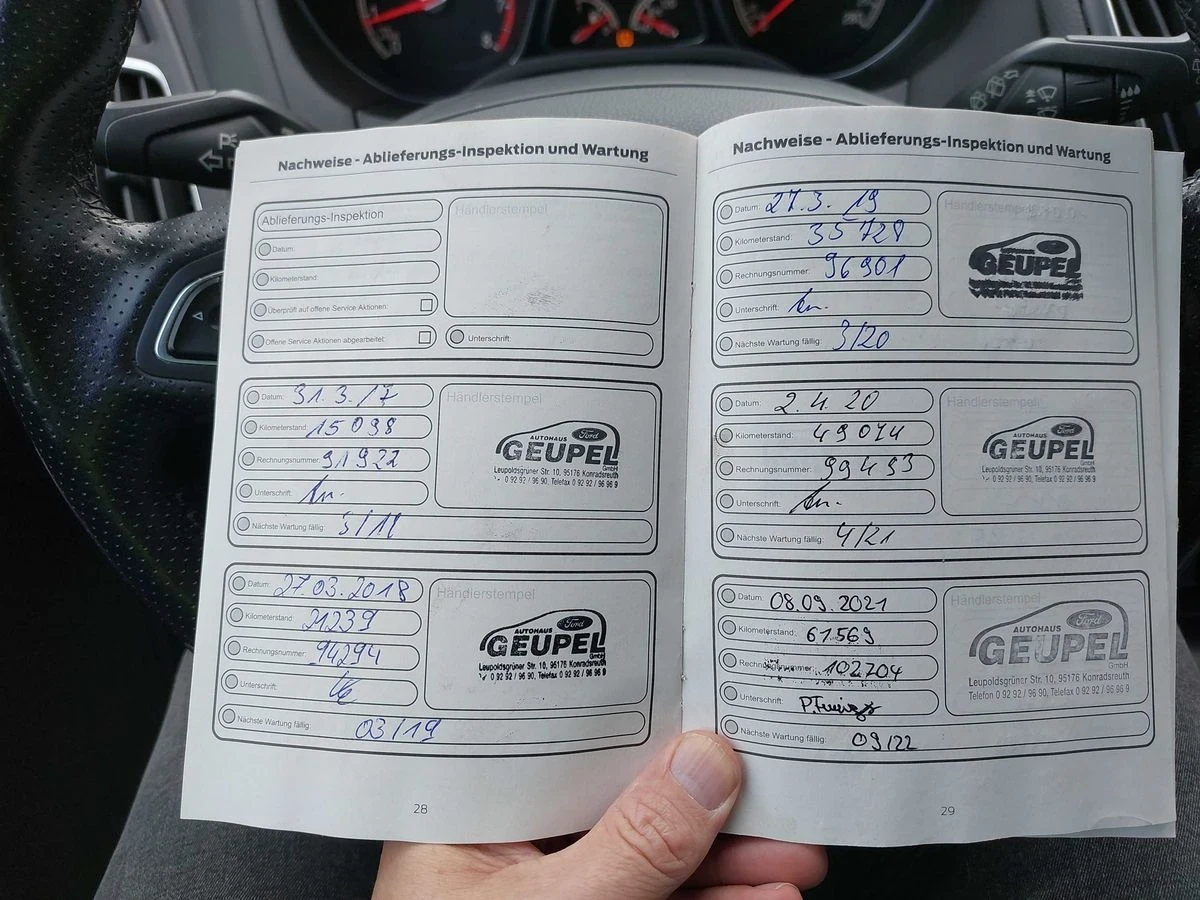 Nachweise - Ablieferungs-Inspektion und Wartung
Ablieferungs-Inspektion
Händlerstempel
Datum:
Kilometerstand:
Überprüft auf offene Service Aktionen:
Offene Service Aktionen abgearbeitet:
Unterschrift:
Datum: 31.3.17
Händlerstempel
Kilometerstand: 15098
Rechnungsnummer: 91922
Unterschrift:
Nächste Wartung fällig: 3/18
AUTOHAUS
Ford
GEUPEL
GmbH
Leupoldsgrüner Str. 10, 95176 Konradsreuth
0 92 92 / 96 90, Telefax 0 92 92 / 96 96 9
Datum: 27.03.2018
Händlerstempel
Kilometerstand: 21239
Rechnungsnummer: 94294
Unterschrift:
Nächste Wartung fällig: 03/19
AUTOHAUS
Ford
GEUPEL
GmbH
Leupoldsgrüner Str. 10, 95176 Konradsreuth
0 92 92 / 96 90, Telefax 0 92 92 / 96 96 9
28
Nachweise - Ablieferungs-Inspektion und Wartung
Datum: 27.3.19
Händlerstempel
Kilometerstand: 35728
Rechnungsnummer: 96901
Unterschrift:
Nächste Wartung fällig: 3/20
Ford
GEUPEL
Datum: 2.4.20
Händlerstempel
Kilometerstand: 49074
Rechnungsnummer: 99493
Unterschrift:
Nächste Wartung fällig: 4/21
AUTOHAUS
Ford
GEUPEL
GmbH
Leupoldsgrüner Str. 10, 95176 Konradsreuth
0 92 92 / 96 90, Telefax 0 92 92 / 96 96 9
Datum: 08.09.2021
Händlerstempel
Kilometerstand: 61569
Rechnungsnummer: 102704
Unterschrift:
Nächste Wartung fällig: 09/22
AUTOHAUS
Ford
GEUPEL
GmbH
Leupoldsgrüner Str. 10, 95176 Konradsreuth
Telefon 0 92 92 / 96 90, Telefax 0 92 92 / 96 96 9
29